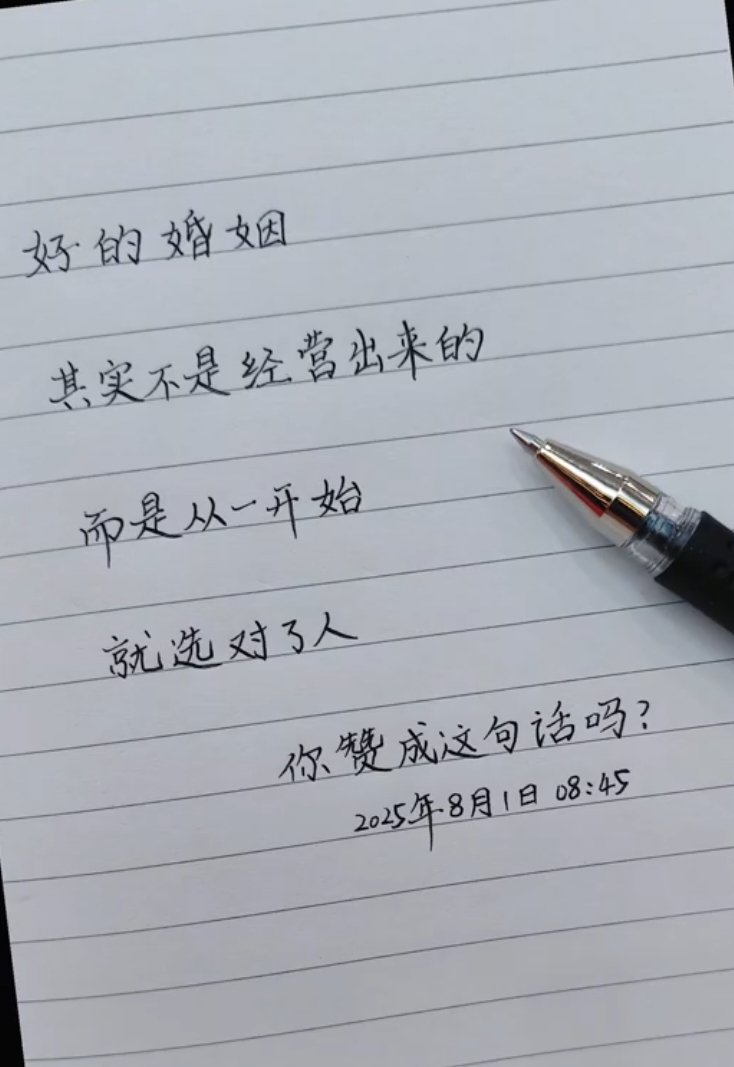 好的婚姻
其实不是经营出来的
而是从一开始
就选对了人
你赞成这句话吗？
2025年8月1日 08:45